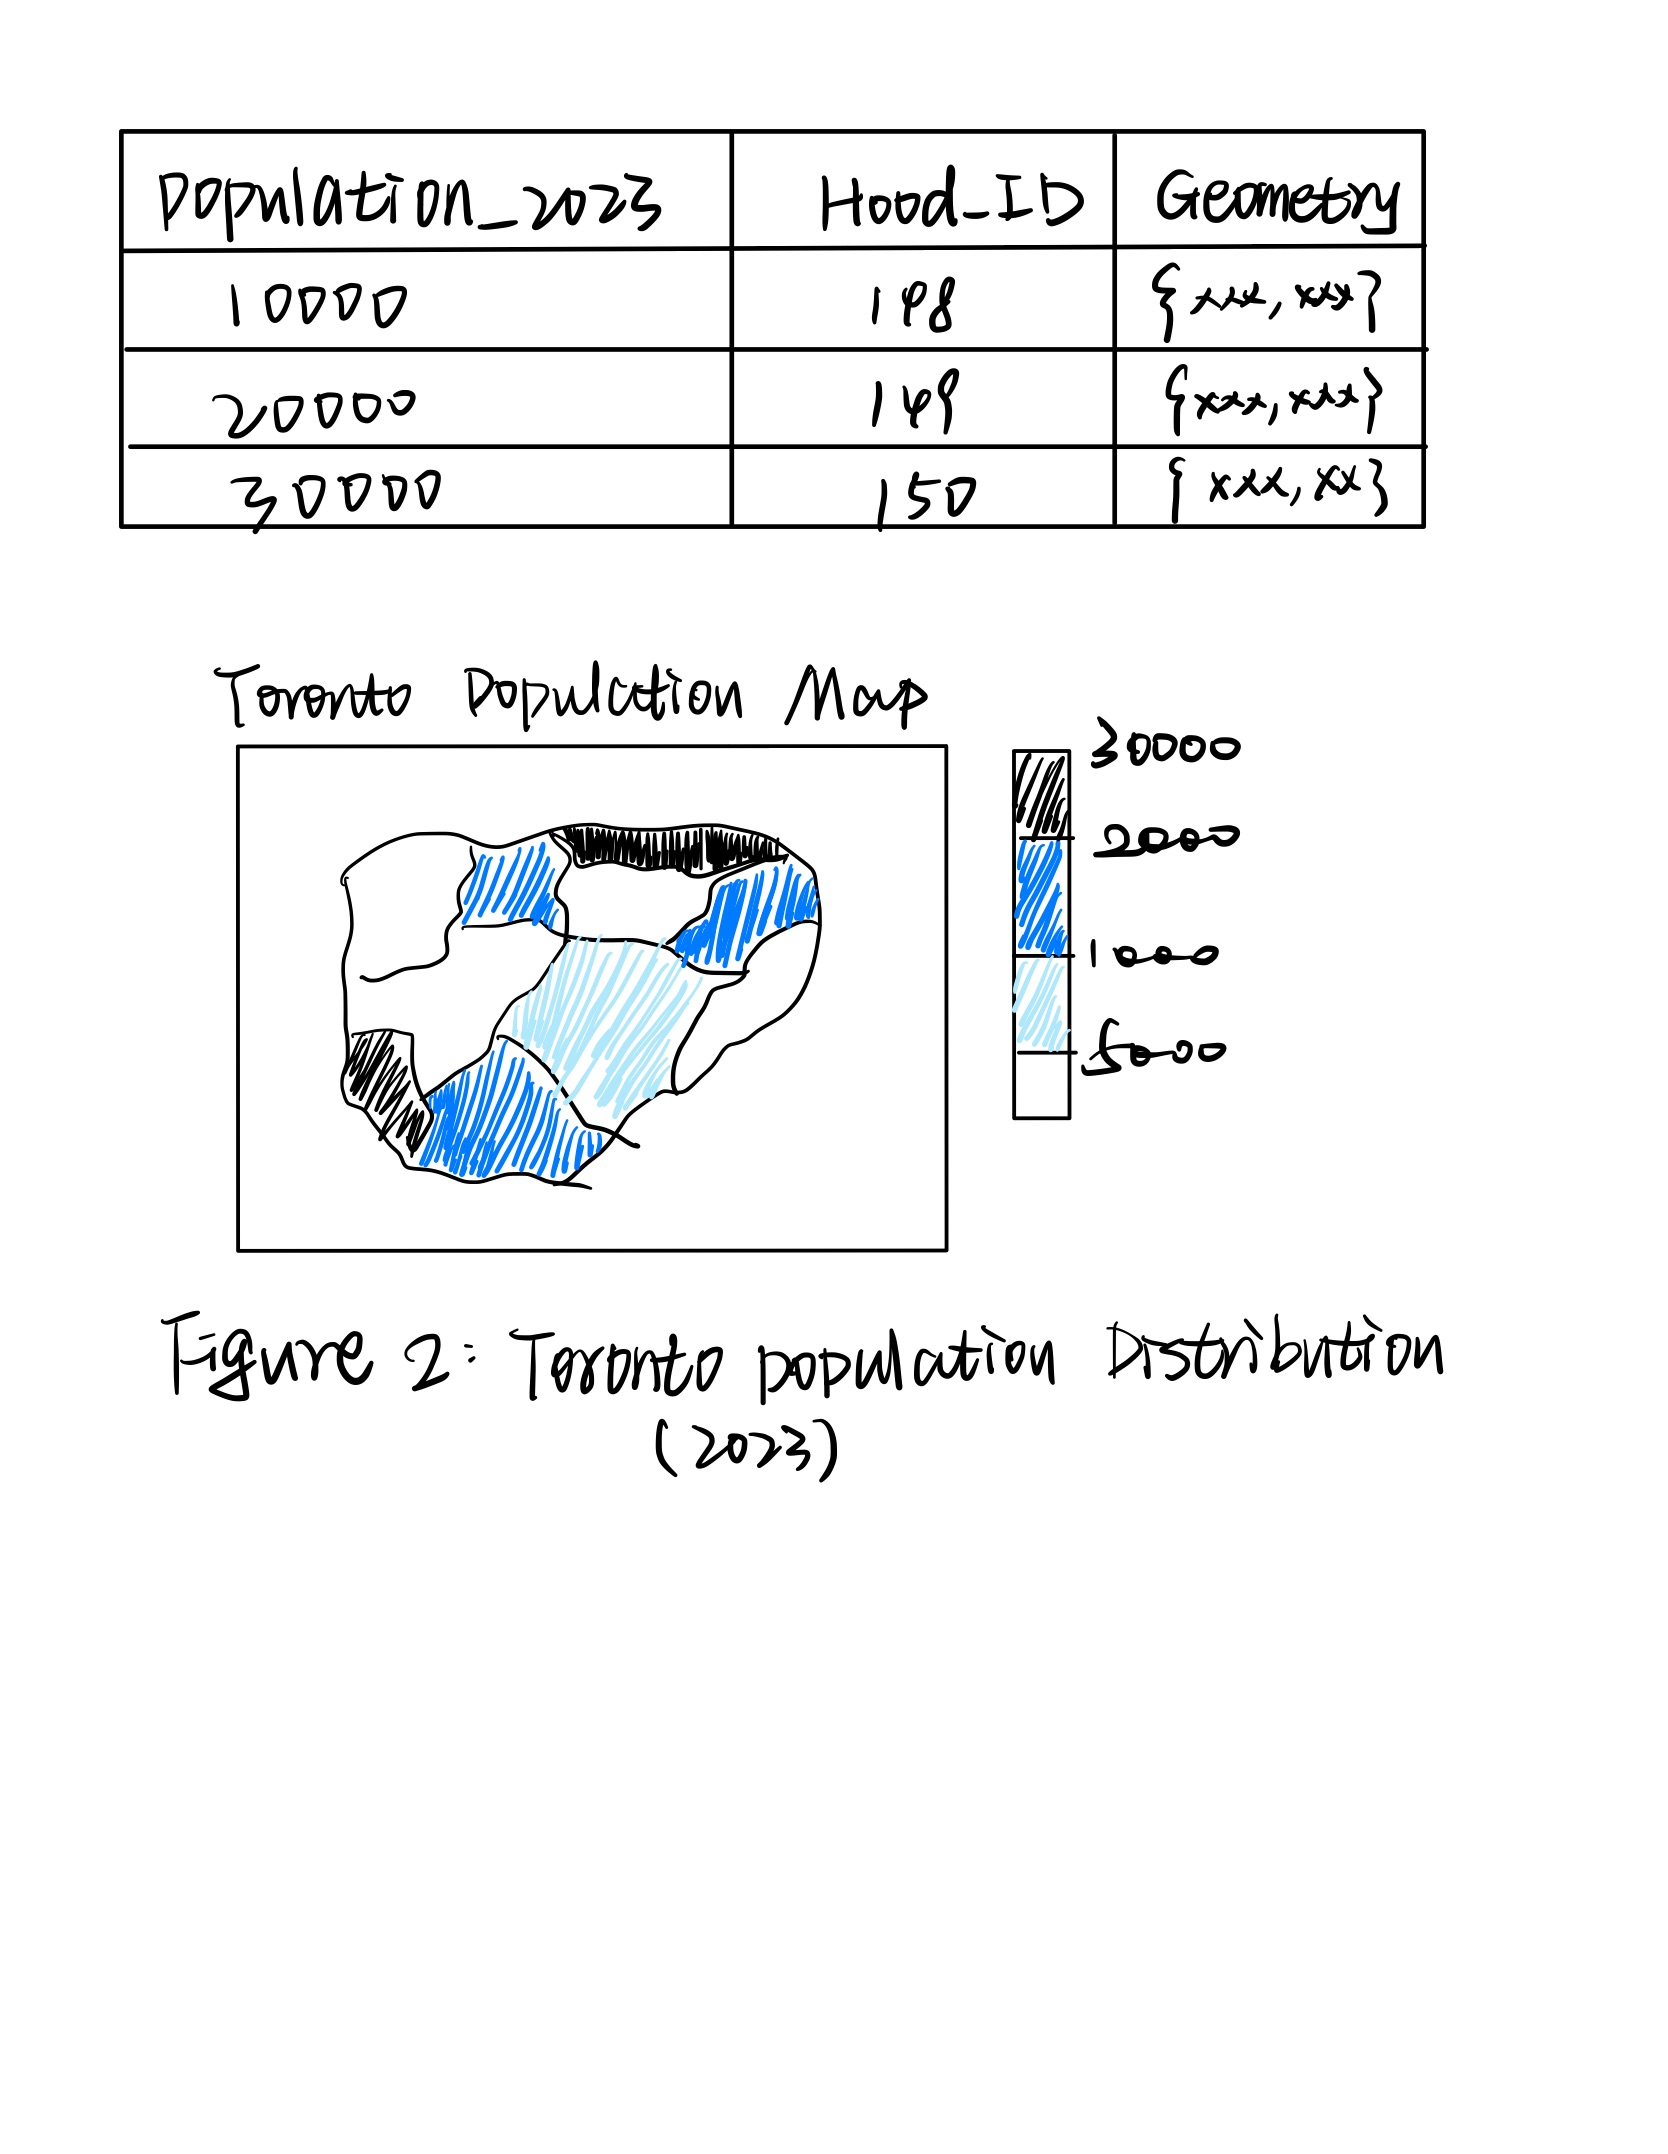 Population_2023 Hood_ID Geometry
10000 148 {xxx, xxx}
20000 149 {xxx, xxx}
30000 150 {xxx, xx}
Toronto Population Map
30000
20000
10000
5000
Figure 2: Toronto population Distribution
(2023)